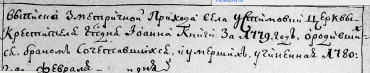 выписана з метричной Прихода села Устимовки Церкви
Крестителя Іоанна Книги За 1779 годъ, ородивших
ся, бракомъ Сочетавшихся, и умершихъ, учиненная 1780
года Февраля дня